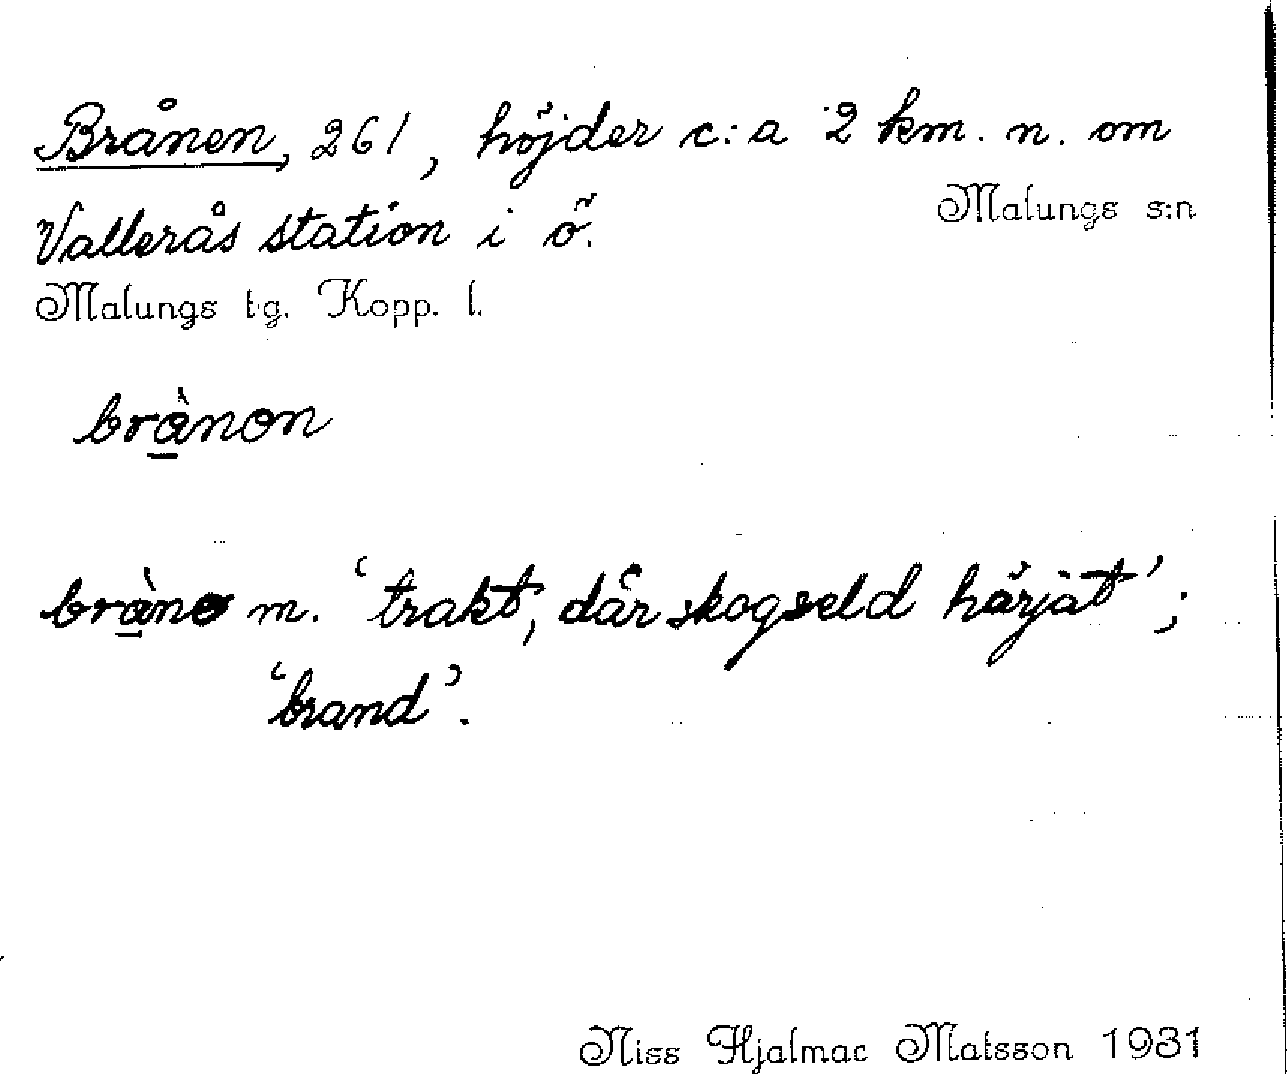 Brånen, 261, höjder c:a 2 km. n. om
Malungs s:n
Vallerås station i ö.
Malungs tg. Kopp. l.
brànon
bràno m. 'trakt, där skogseld härjat';
'brand'.
Niss Hjalmar Matsson 1931